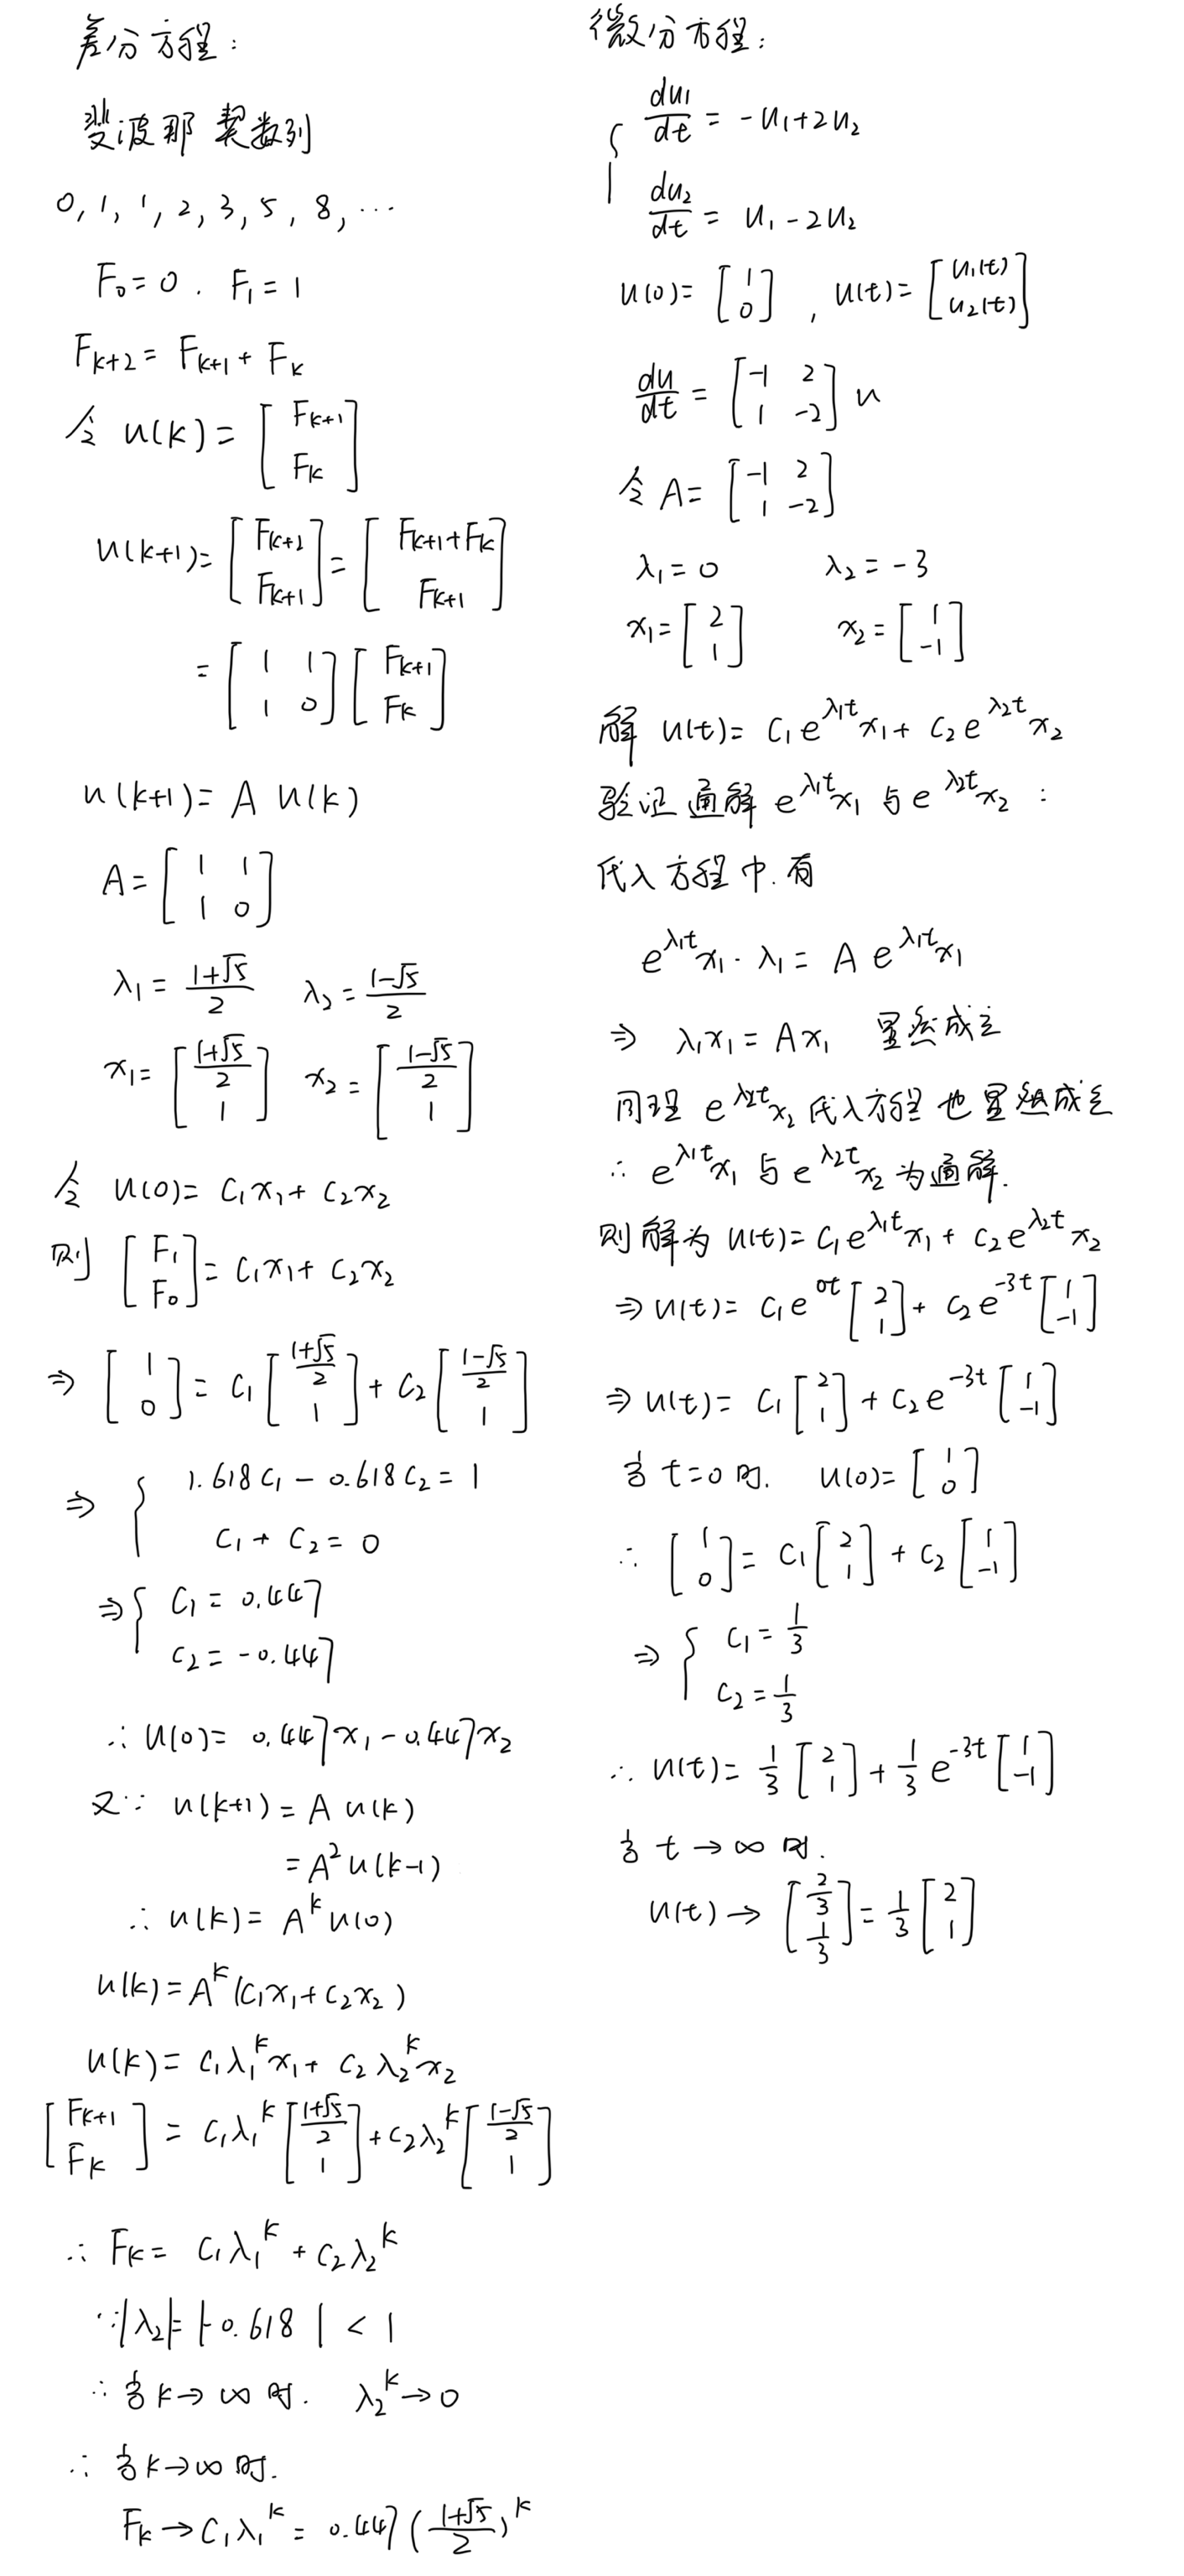 差分方程：
斐波那契数列
0, 1, 1, 2, 3, 5, 8, ⋯
F₀ = 0 . F₁ = 1
Fₖ₊₂ = Fₖ₊₁ + Fₖ
令 u(k) = [Fₖ₊₁; Fₖ]
u(k+1) = [Fₖ₊₂; Fₖ₊₁] = [Fₖ₊₁+Fₖ; Fₖ₊₁]
= [1 1; 1 0] [Fₖ₊₁; Fₖ]
u(k+1) = A u(k)
A = [1 1; 1 0]
λ₁ = (1+√5)/2 λ₂ = (1-√5)/2
x₁ = [(1+√5)/2; 1] x₂ = [(1-√5)/2; 1]
令 u(0) = c₁x₁ + c₂x₂
则 [F₁; F₀] = c₁x₁ + c₂x₂
⇒ [1; 0] = c₁ [(1+√5)/2; 1] + c₂ [(1-√5)/2; 1]
⇒ { 1.618c₁ - 0.618c₂ = 1
c₁ + c₂ = 0
⇒ { c₁ = 0.447
c₂ = -0.447
∴ u(0) = 0.447x₁ - 0.447x₂
又∵ u(k+1) = A u(k)
= A² u(k-1)
∴ u(k) = Aᵏ u(0)
u(k) = Aᵏ(c₁x₁ + c₂x₂)
u(k) = c₁λ₁ᵏx₁ + c₂λ₂ᵏx₂
[Fₖ₊₁; Fₖ] = c₁λ₁ᵏ [(1+√5)/2; 1] + c₂λ₂ᵏ [(1-√5)/2; 1]
∴ Fₖ = c₁λ₁ᵏ + c₂λ₂ᵏ
∵ |λ₂| = |-0.618| < 1
∴ 当 k→∞ 时. λ₂ᵏ→0
∴ 当 k→∞ 时.
Fₖ → c₁λ₁ᵏ = 0.447((1+√5)/2)ᵏ
微分方程：
{ du₁/dt = -u₁+2u₂
du₂/dt = u₁-2u₂
u(0) = [1; 0] , u(t) = [u₁(t); u₂(t)]
du/dt = [-1 2; 1 -2] u
令 A = [-1 2; 1 -2]
λ₁ = 0 λ₂ = -3
x₁ = [2; 1] x₂ = [1; -1]
解 u(t) = c₁e^(λ₁t)x₁ + c₂e^(λ₂t)x₂
验证通解 e^(λ₁t)x₁ 与 e^(λ₂t)x₂ :
代入方程中.有
e^(λ₁t)x₁·λ₁ = A e^(λ₁t)x₁
⇒ λ₁x₁ = Ax₁ 显然成立
同理 e^(λ₂t)x₂ 代入方程也显然成立
∴ e^(λ₁t)x₁ 与 e^(λ₂t)x₂ 为通解.
则解为 u(t) = c₁e^(λ₁t)x₁ + c₂e^(λ₂t)x₂
⇒ u(t) = c₁e^(0t) [2; 1] + c₂e^(-3t) [1; -1]
⇒ u(t) = c₁ [2; 1] + c₂e^(-3t) [1; -1]
当 t=0 时. u(0) = [1; 0]
∴ [1; 0] = c₁ [2; 1] + c₂ [1; -1]
⇒ { c₁ = 1/3
c₂ = 1/3
∴ u(t) = 1/3 [2; 1] + 1/3 e^(-3t) [1; -1]
当 t→∞ 时.
u(t) → [2/3; 1/3] = 1/3 [2; 1]